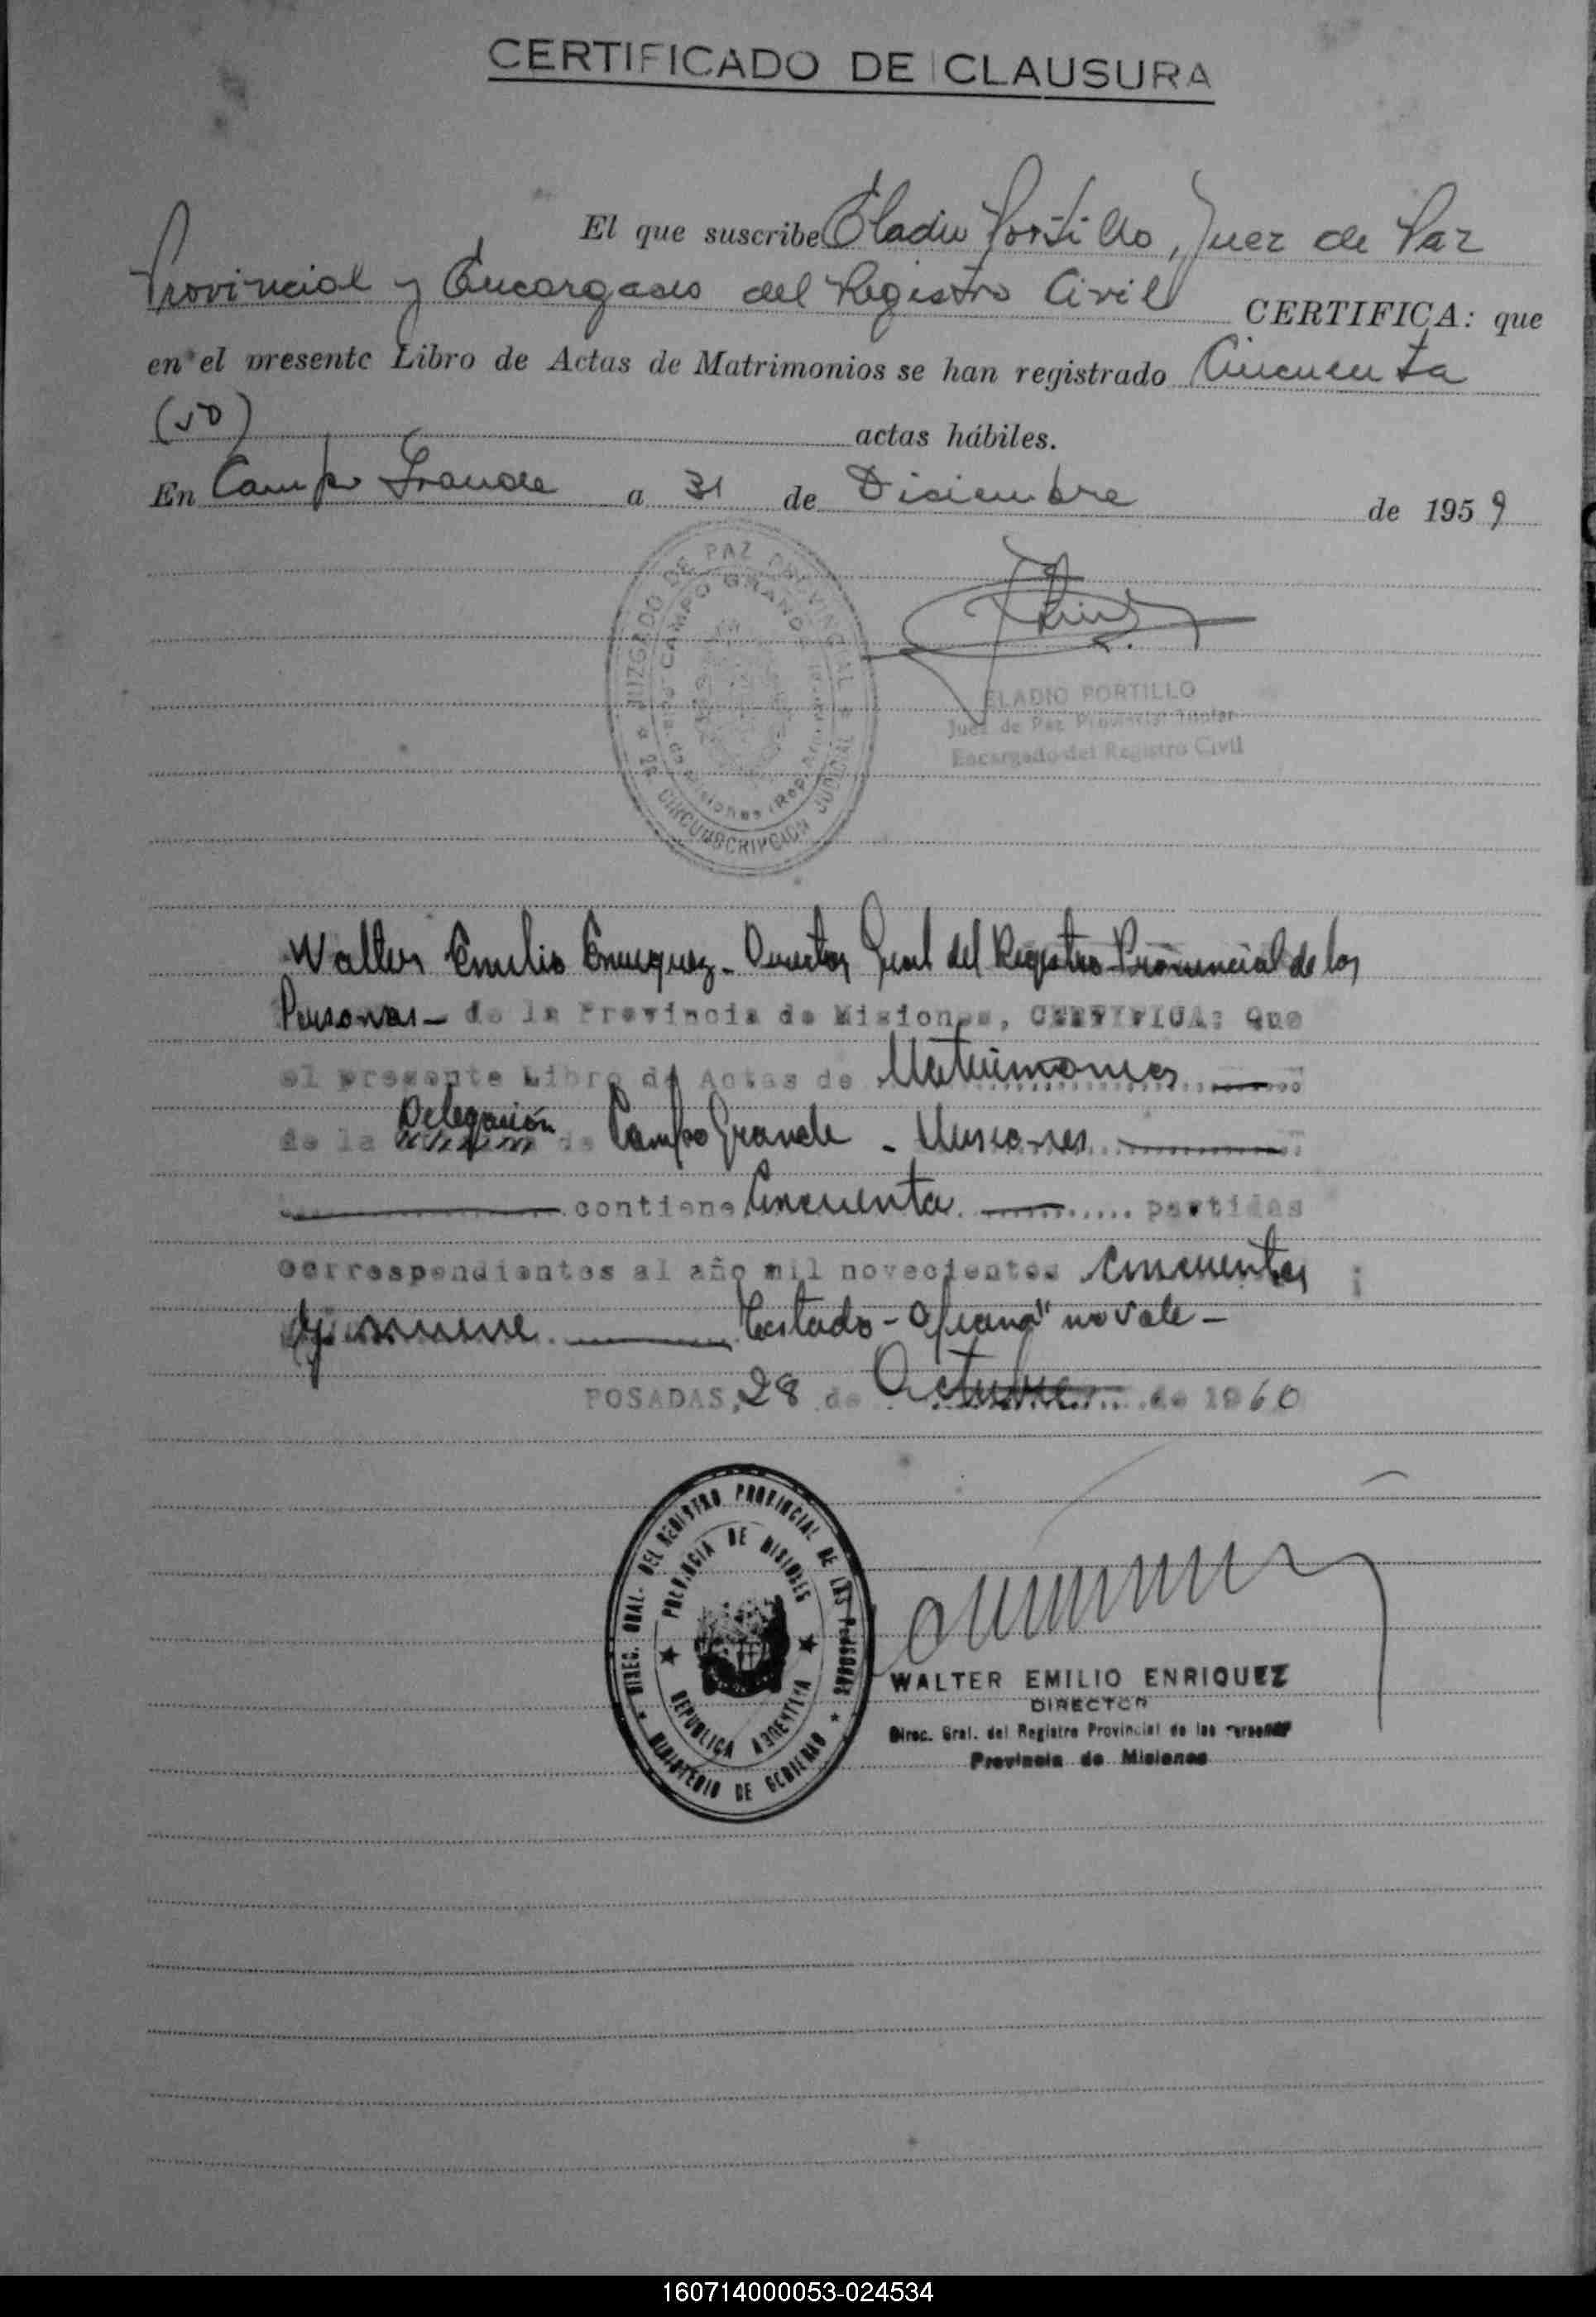 CERTIFICADO DE CLAUSURA
El que suscribe Eladio Portillo, Juez de Paz
Provincial y Encargado del Registro Civil CERTIFICA: que
en el presente Libro de Actas de Matrimonios se han registrado Cincuenta
(50) actas hábiles.
En Campo Grande a 31 de Diciembre de 1959
JUZGADO DE PAZ PROVINCIAL
CAMPO GRANDE
Misiones (Rep. Argentina)
2a CIRCUNSCRIPCION JUDICIAL
ELADIO PORTILLO
Juez de Paz Provincial Titular
Encargado del Registro Civil
Walter Emilio Enriquez - Director Gral del Registro Provincial de las
Personas - de la Provincia de Misiones, CERTIFICA: Que
el presente Libro de Actas de Matrimonios
Delegación
de la de Campo Grande - Misiones
contiene Cincuenta partidas
correspondientes al año mil novecientos cincuenta
y nueve. Testado - Oficina" no vale -
POSADAS, 28 de Octubre de 1960
DIREC. GRAL. DEL REGISTRO PROVINCIAL DE LAS PERSONAS
PROVINCIA DE MISIONES
REPUBLICA ARGENTINA
MINISTERIO DE GOBIERNO
WALTER EMILIO ENRIQUEZ
DIRECTOR
Direc. Gral. del Registro Provincial de las Personas
Provincia de Misiones
160714000053-024534